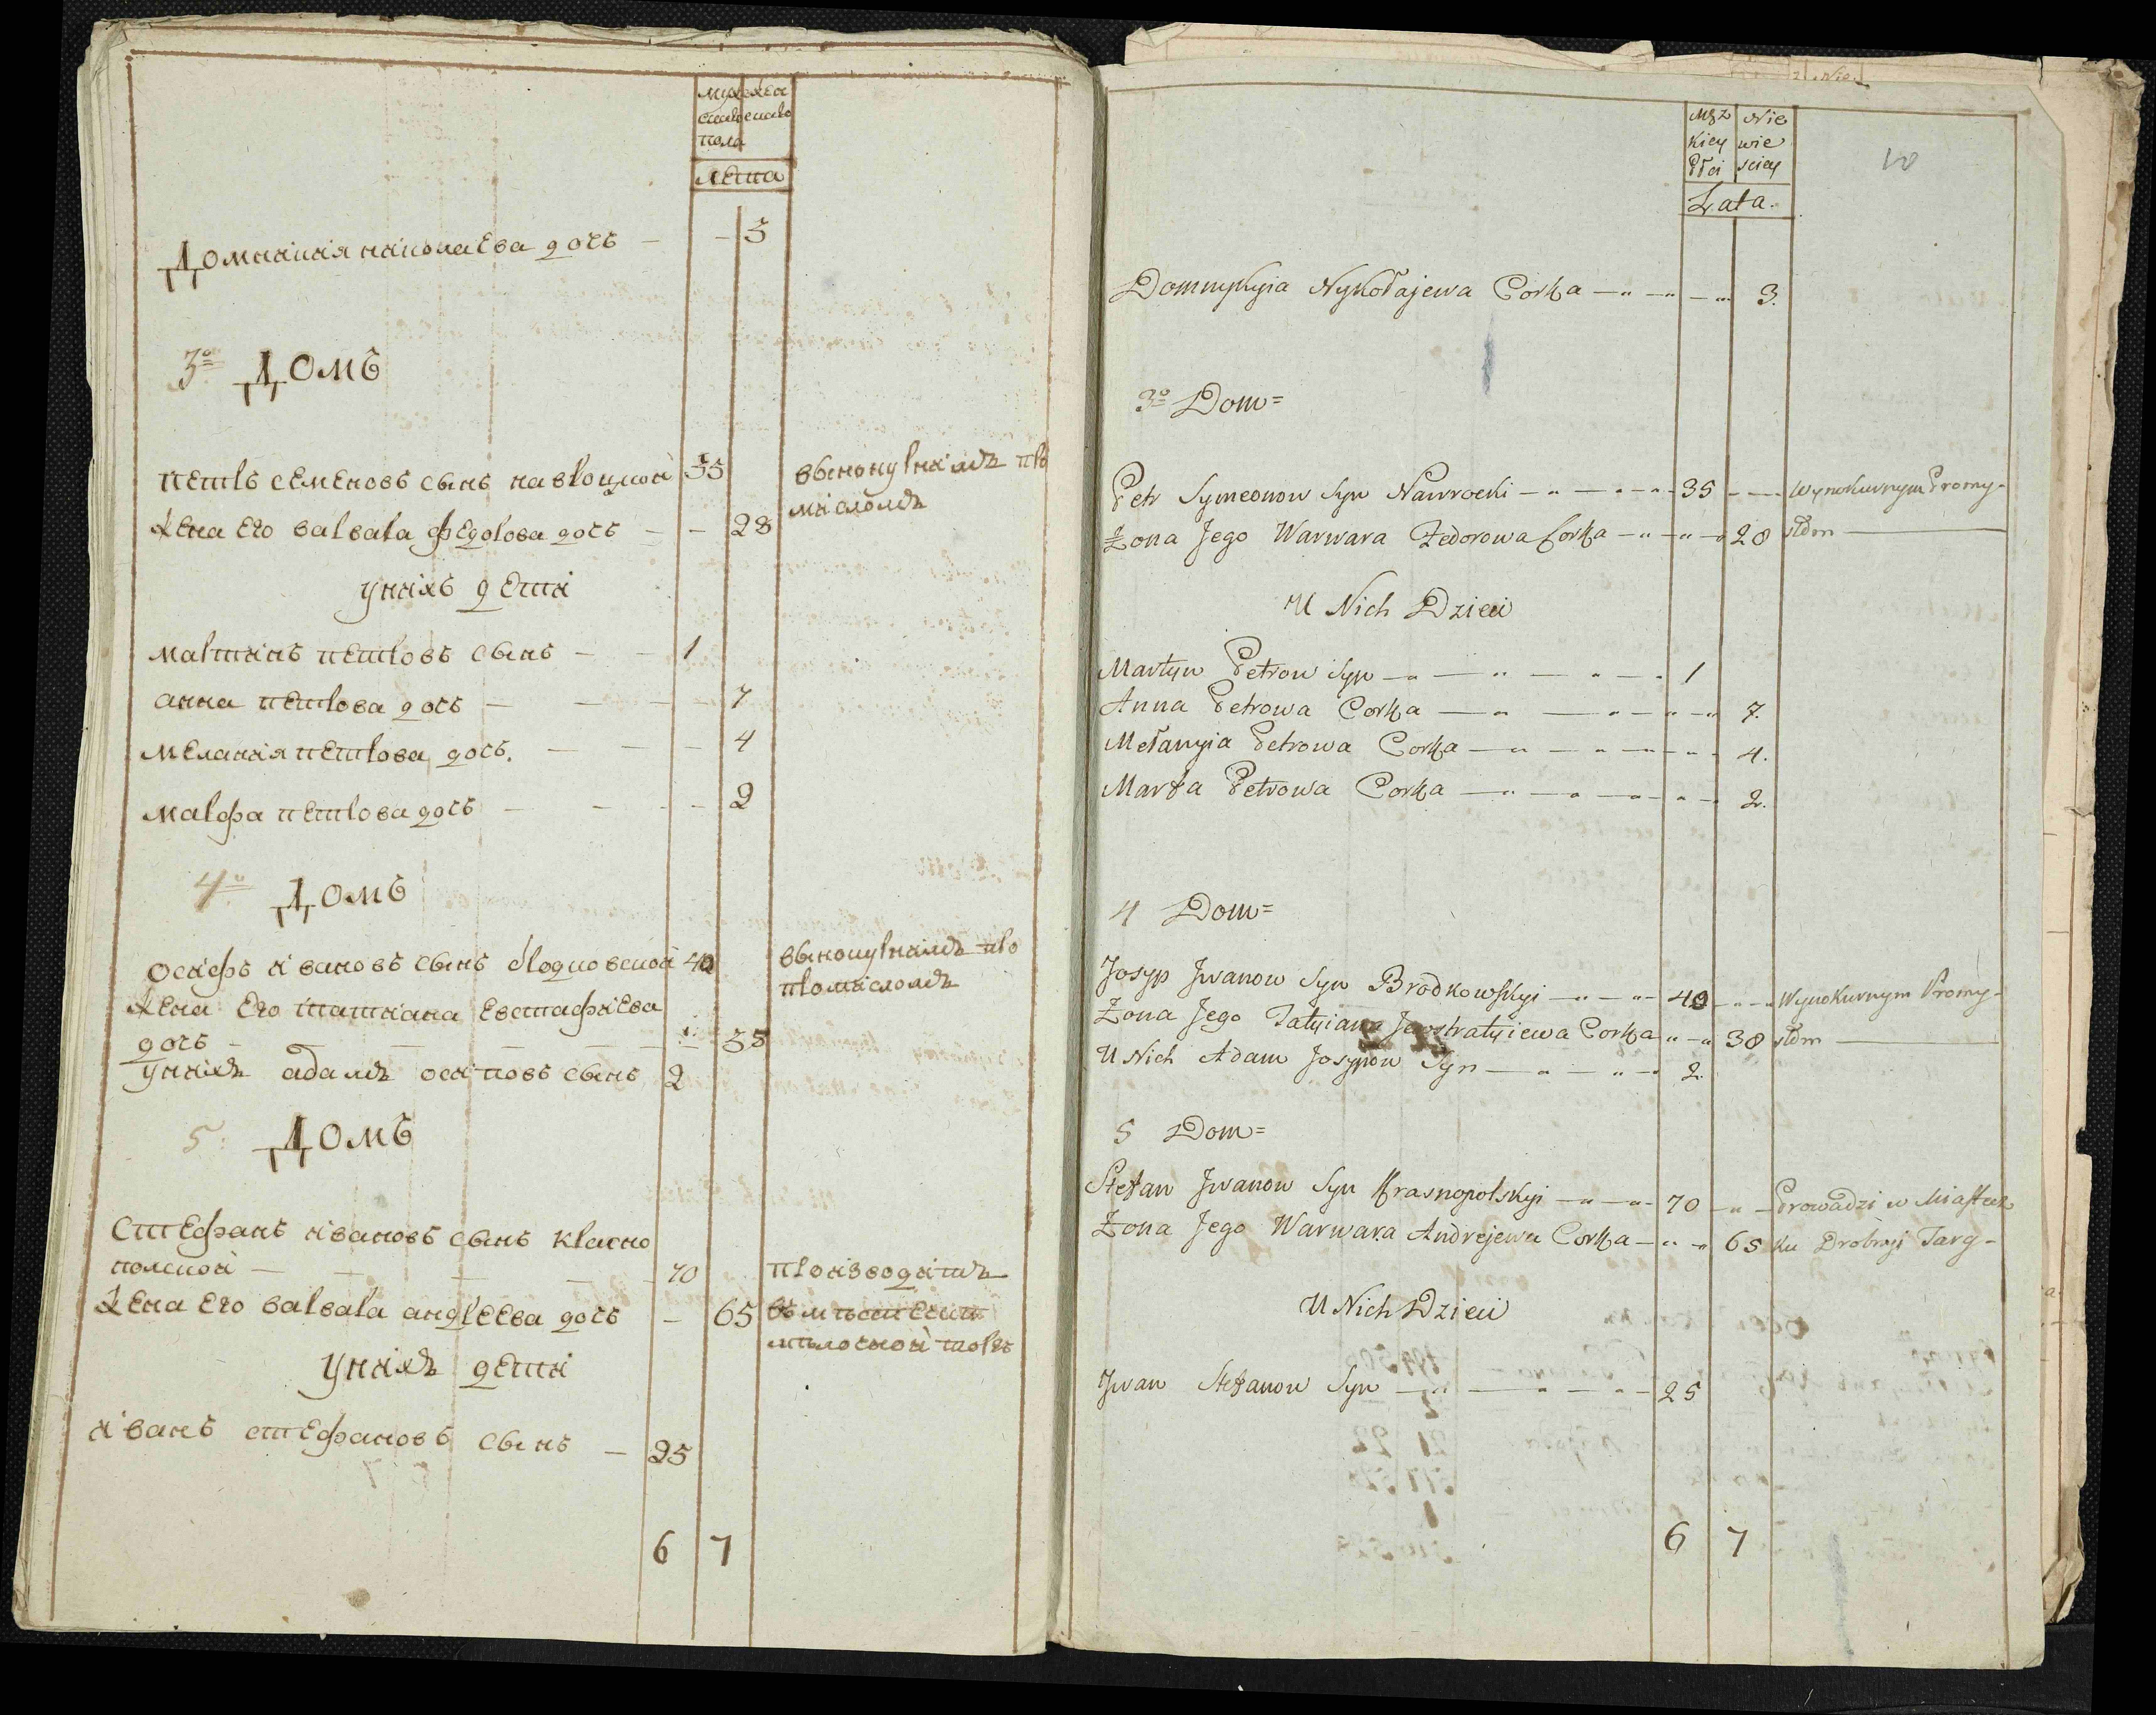 муж жен
ска скаго
пола
лета
Домникия николаева дочь - - 3
3º Домъ
петръ семеновъ сынъ навроцкой 35 вынокурнимъ про
мисломъ
Жена его варвара федорова дочь - - 28
унихъ дети
мартинъ петровъ сынъ - - 1
анна петрова дочь - - - - 7
мелания петрова дочь. - - - 4
марфа петрова дочь - - - - 2
4º Домъ
осифъ ивановъ сынъ бродковской 40 вынокурнимъ про
промисломъ
Жена его татиана евстафиева
дочь - - - - 38
унихъ адамъ осиповъ сынъ 2
5: Домъ
Стефанъ ивановъ сынъ красно
полской - - - - 70 производитъ
Жена его варвара андреева дочь - 65 въ местечки
мелочной торгъ
унихъ дети
иванъ стефановъ сынъ - 25
6 7
Męz Nie
kiey wie
Płci sciey
Lata.
10
Domnykyia Nykołajewa Corka - - - - 3.
3º Dom=
Petr Symeonow Syn Nawrocki - - - - 35 - - Wynokurnym Promy-
Żona Jego Warwara Fedorowa Corka - - - 28 słom
U Nich Dzieci
Martyn Petrow Syn - - - - - 1
Anna Petrowa Corka - - - - - 7.
Mełanyia Petrowa Corka - - - - - 4.
Marfa Petrowa Corka - - - - - 2.
4 Dom=
Josyp Jwanow Syn Brodkowskyi - - - 40 - - Wynokurnym Promy-
Żona Jego Tatyiana Jewstratyiewa Corka - - 38 słom
U Nich Adam Josypow Syn - - - - 2.
5 Dom=
Stefan Jwanow Syn Krasnopolskyi - - - 70 - - Prowadzi w Miastecz
Żona Jego Warwara Andrejewa Corka - - - 65 ku Drobnyi Targ-
U Nich Dzieci
Jwan Stefanow Syn - - - - - 25
6 7